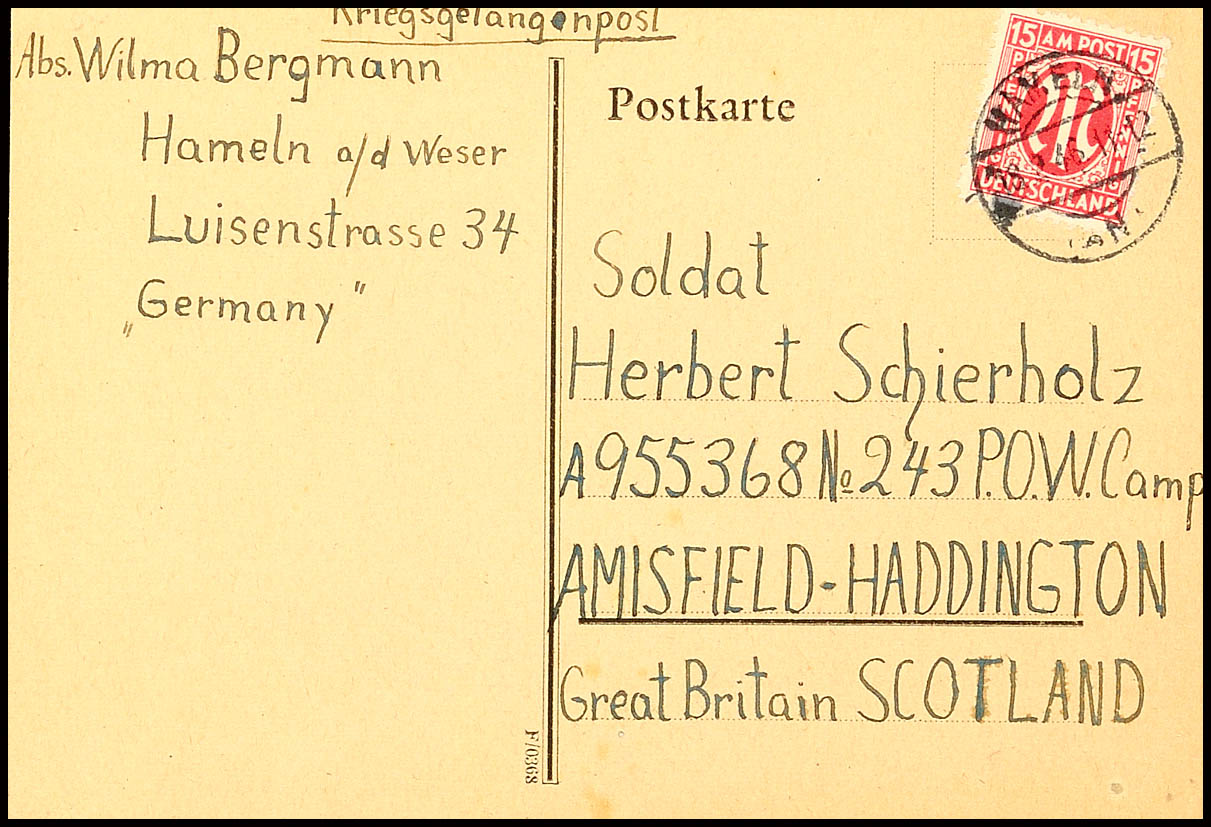 Kriegsgefangenpost
Abs. Wilma Bergmann
Hameln a/d Weser
Luisenstrasse 34
„Germany"
Postkarte
15 AM POST 15
PFENNIG PFENNIG
DEUTSCHLAND
HAMELN
Soldat
Herbert Schierholz
A955368 № 243 P.O.W. Camp
AMISFIELD-HADDINGTON
Great Britain SCOTLAND
F/0368